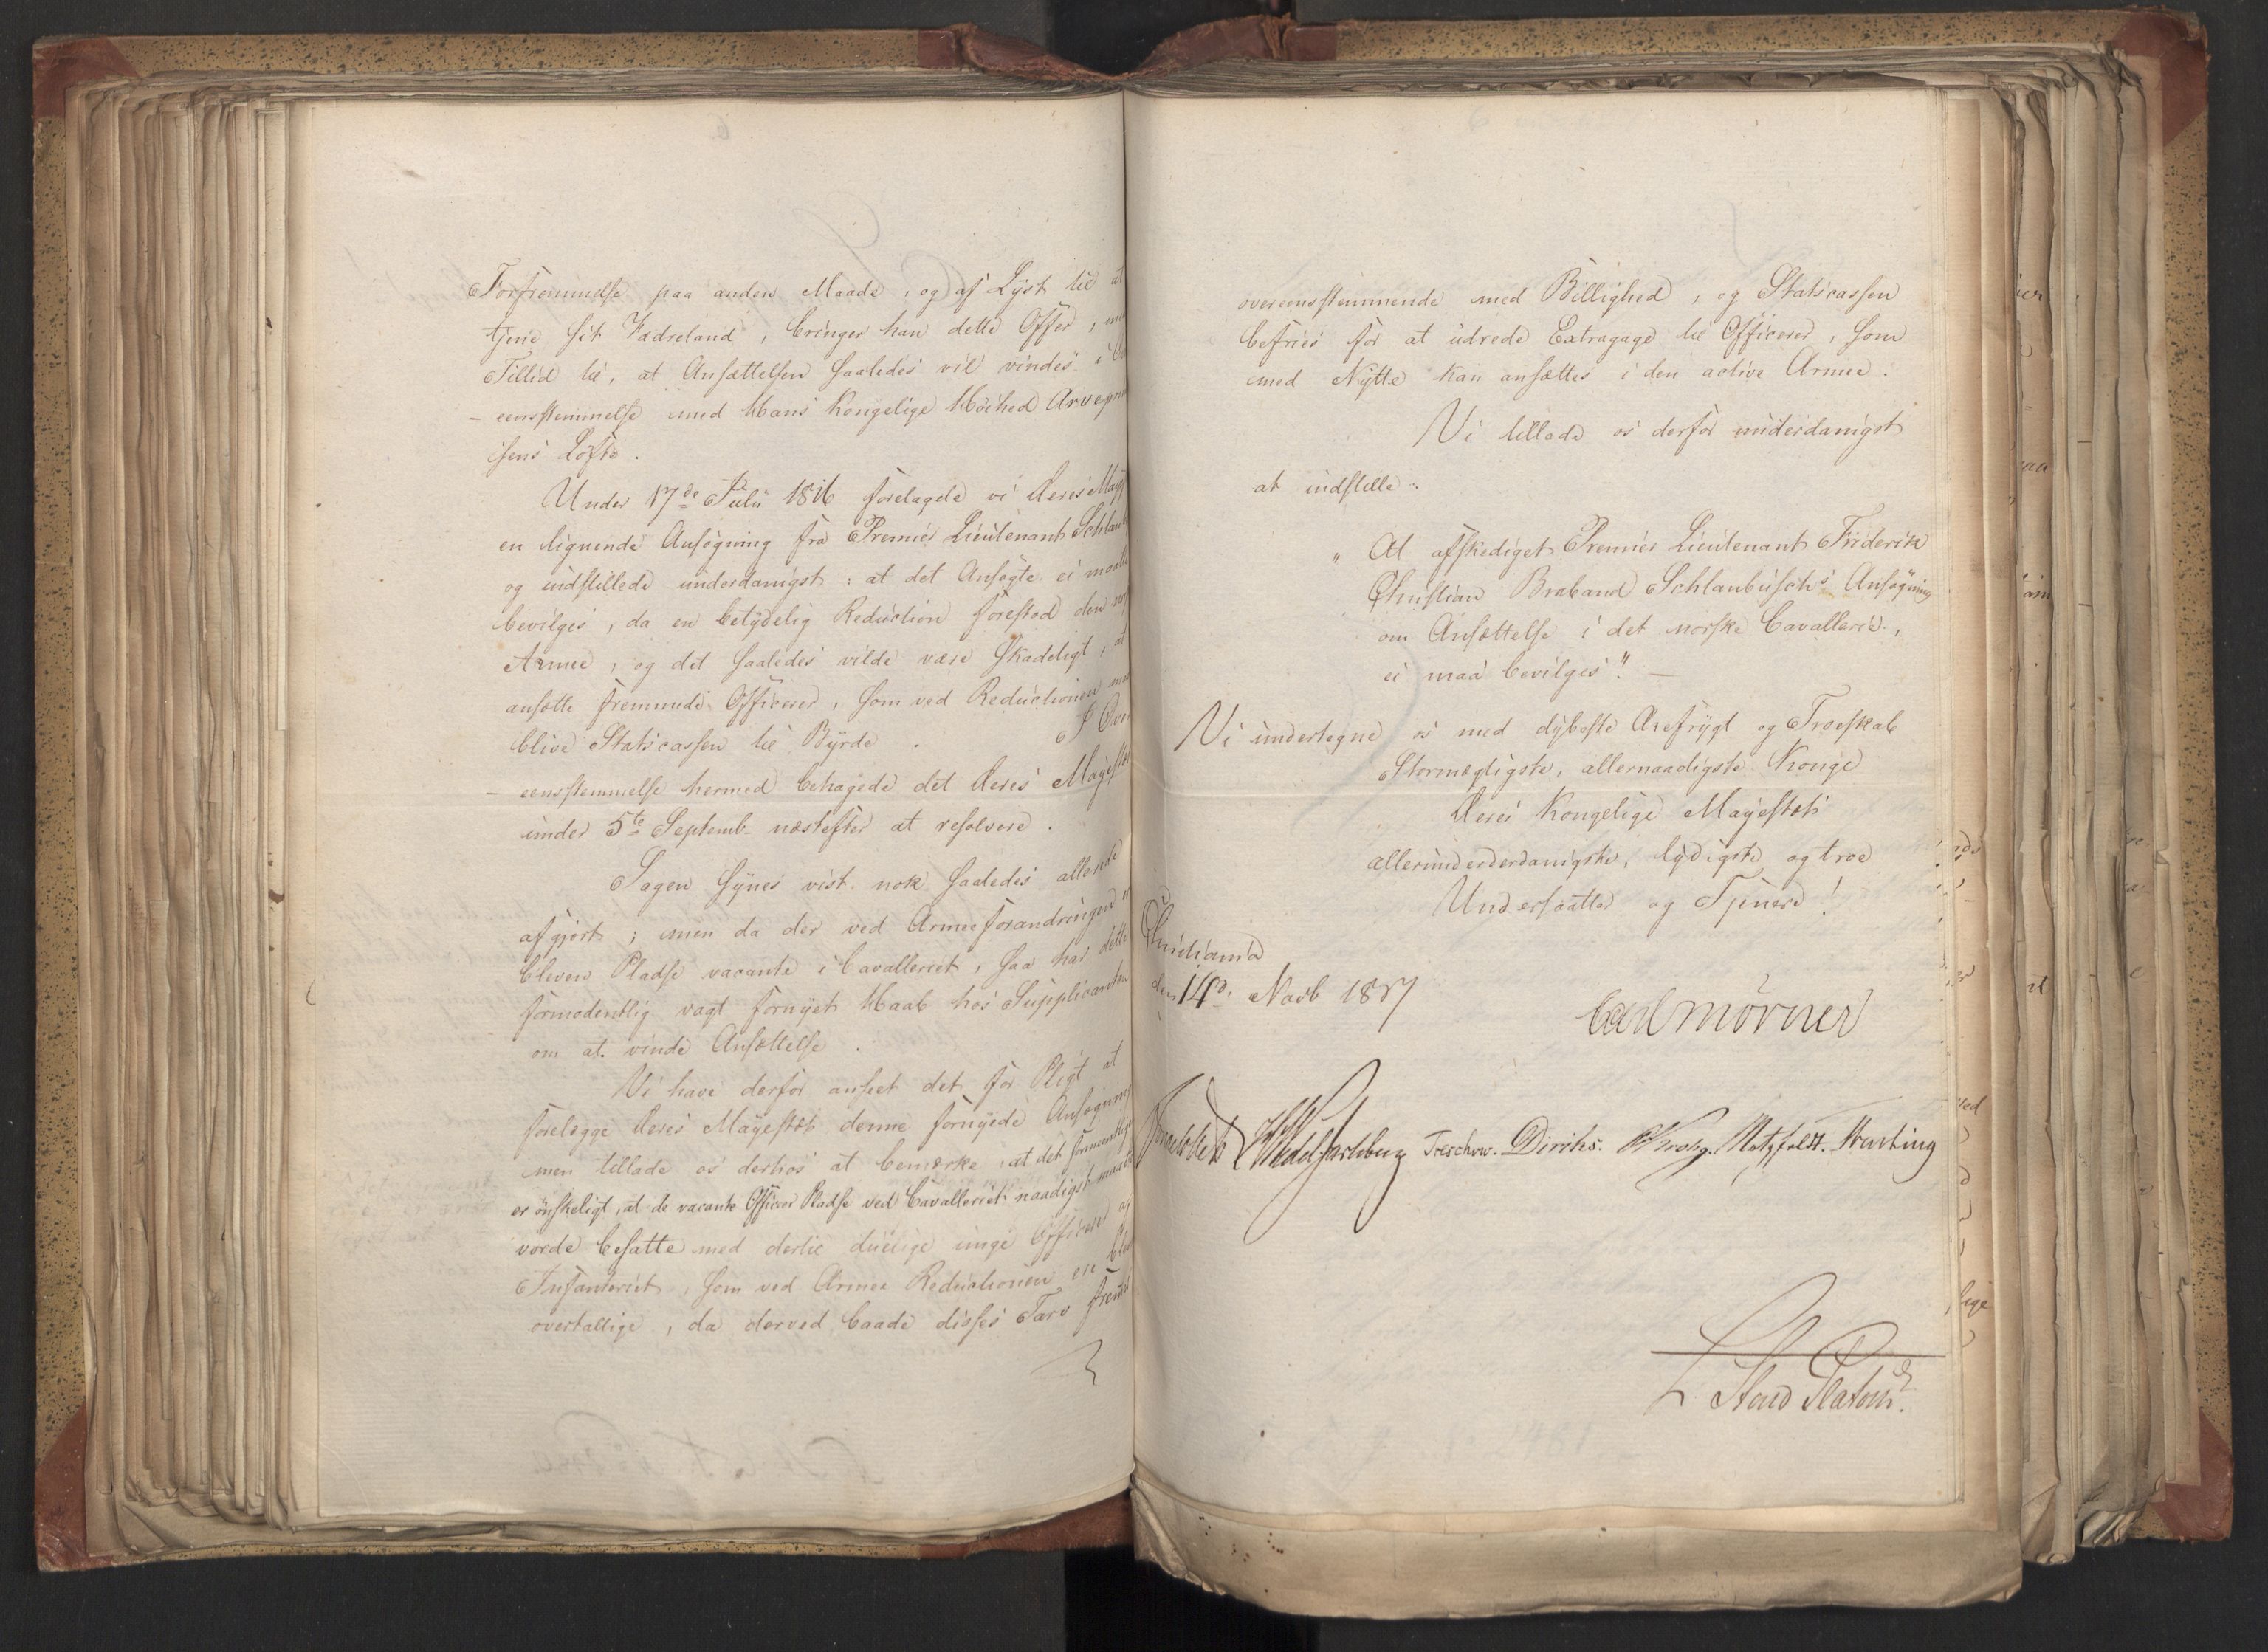 Forfremmelse paa anden Maade, og af Lyst til at
tjene sit Fædreland, bringer han dette Offer, med
Tillid til, at Ansættelsen saaledes vil vindes i
- eensstemmelse med Hans Kongelige Høihed Arvepri
sens Løfte.
Under 17de Julii 1816 forelagde vi Deres Maj
en lignende Ansøgning fra Premier Lieutenant Schlanb
og indstillede underdanigst: at det Ansøgte ei maatte
bevilges, da en betydelig Reduction forestod den
Armee, og det saaledes vilde være skadeligt, at
ansætte fremmede Officerer, som ved Reductionen
blive Statscassen til Byrde. I Over
- eensstemmelse hermed behagede det Deres Majestæt
under 5te Septemb. næstefter at resolvere.
Sagen synes vist nok saaledes allerede
afgjort; men da der ved Armeeforandringen
bleven Pladse vacante i Cavalleriet, saa har dette
formodentlig vagt fornyet Haab hos Supplicanten
om at vinde Ansættelse.
Vi have derfor anseet det for Pligt at
forelægge Deres Majestæt denne fornyede Ansøgning
men tillade os derhos at bemærke, at det
er ønskeligt, at de vacante Officier Pladse ved Cavalleriet naadigst maatte
vorde besatte med dertil duelige unge Officerer af
Infanteriet, som ved Armee Reductionen ere blevne
overtallige, da derved baade disses Tarv
overeensstemmende med Billighed, og Statscassen
befries for at udrede Extragage til Officerer, som
med Nytte kan ansættes i den active Armee.
Vi tillade os derfor underdanigst
at indstille:
" At afskediget Premier Lieutenant Friderik
Christian Braband Schlanbusch's Ansøgning
om Ansættelse i det norske Cavallerie,
ei maa bevilges". -
Vi undertegne os med dybeste Ærefrygt og Troeskab
Stormægtigste, allernaadigste Konge
Deres Kongelige Majestæts
allerunderderdanigste, lydigste og troe
Undersaatter og Tjenere!
Christiania
den 14d. Novb 1817
Carl Mörner
Sommerhielm Wedel Jarlsberg Treschow. Diriks. Krohg. Motzfeldt. Hunting